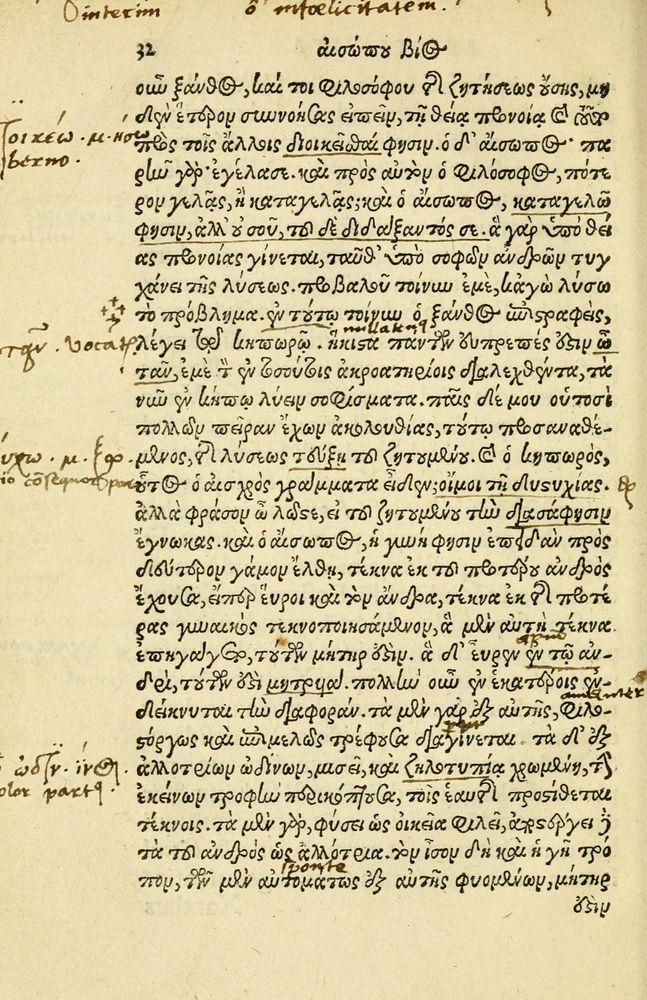 interim ὃ infœlicitatem.
32 ἀισώπου βίος
οιῶ ξάνθος, καί τοι φιλοσόφου τῆς ζητήσεως ὄυσης, μη
δὲν ἕτερον σιωνοήσας ἐιπεῖν, τῇ θεία προνοία καὶ ὥσπερ
πρὸς τοῖς ἄλλοις διοικεῖσθαι φησιν. ὁ δ' ἄισωπος παρ
ρῆν γὰρ ἐγέλασε. καὶ πρὸς αὐτὸν ὁ φιλόσοφος, πότε
ρον γελᾷς, ἢ καταγελᾷς; καὶ ὁ ἄισωπος, καταγελῶ
φησιν, ἀλλ' ὀυ σοῦ, τοῦ δὲ διδαξαντός σε. ἃ γὰρ ὑπὸ θεί
ας προνοίας γίνεται, ταῦθ' ὑπὸ σοφῶν ἀνδρῶν τυγ
χάνει τῆς λύσεως. προβαλοῦ τοίνυν ἐμὲ, κἀγὼ λύσω
τὸ πρόβλημα. ἐν τούτῳ τοίνυν ὁ ξάνθος ἐπιστραφεὶς,
λέγει τῷ κηπωρῷ. ἥκιστα πάντων ἐυπρεπές ἐστιν ὦ
ταῦν, ἐμὲ τὸν ἐν τοσούτοις ἀκροατηρίοις διαλεχθέντα, τὰ
νῦν ἐν κήπῳ λύειν σοφίσματα. παῖς δέ μου ὁυτοσὶ
πολλῶν πεῖραν ἔχων ἀκολουθίας, τούτῳ προσαναθέ-
μενος, τῆς λύσεως τεύξῃ τοῦ ζητουμένου. καὶ ὁ κηπωρὸς,
ὁῦτος ὁ ἀισχρὸς γράμματα ἐιδεν; ὄιμοι τῇ δυστυχίας.
ἀλλὰ φράσον ὦ λῷστε, ἐι τοῦ ζητουμένου τὴν διασάφησιν
ἔγνωκας. καὶ ὁ ἄισωπος, ἡ γυνὴ φησιν ἐπειδὰν πρὸς
δεύτερον γάμον ἔλθῃ, τέκνα ἐκ τοῦ προτέρου ἀνδρὸς
ἔχουσα, ἐίπερ ἕυροι καὶ τὸν ἄνδρα, τέκνα ἐκ τῆς προτέ
ρας γυναικὸς τεκνοποιησάμενον, ἃ μὲν αὐτὴ τέκνα
ἐπηγάγετο, τούτων μήτηρ ἐστίν. ἃ δ' ἕυρεν ἐν τῷ ἀν-
δρὶ, τούτων ἐστὶ μητρυιά. πολλὴν οὖν ἐν ἑκατέροις ἐν-
δείκνυται τὴν διαφοράν. τὰ μὲν γὰρ ἐξ αὐτῆς, φιλο-
στόργως καὶ ἐπιμελῶς τρέφουσα διαγίνεται. τὰ δ' ἐξ
ἀλλοτρίων ὠδίνων, μισεῖ, καὶ ζηλοτυπία χρωμένη, τῆς
ἐκείνων τροφὴν περικόπτουσα, τοῖς ἑαυτῆς προστίθεται
τέκνοις. τὰ μὲν γὰρ, φύσει ὡς ὀικεῖα φιλεῖ, ἀποστέργει δὲ
τὰ τοῦ ἀνδρὸς ὡς ἀλλότρια. τὸν ἴσον δὴ καὶ ἡ γῆ τρό
πον, τῶν μὲν αὐτομάτως ἐξ αὐτῆς φυομένων, μήτηρ
ἐστὶν